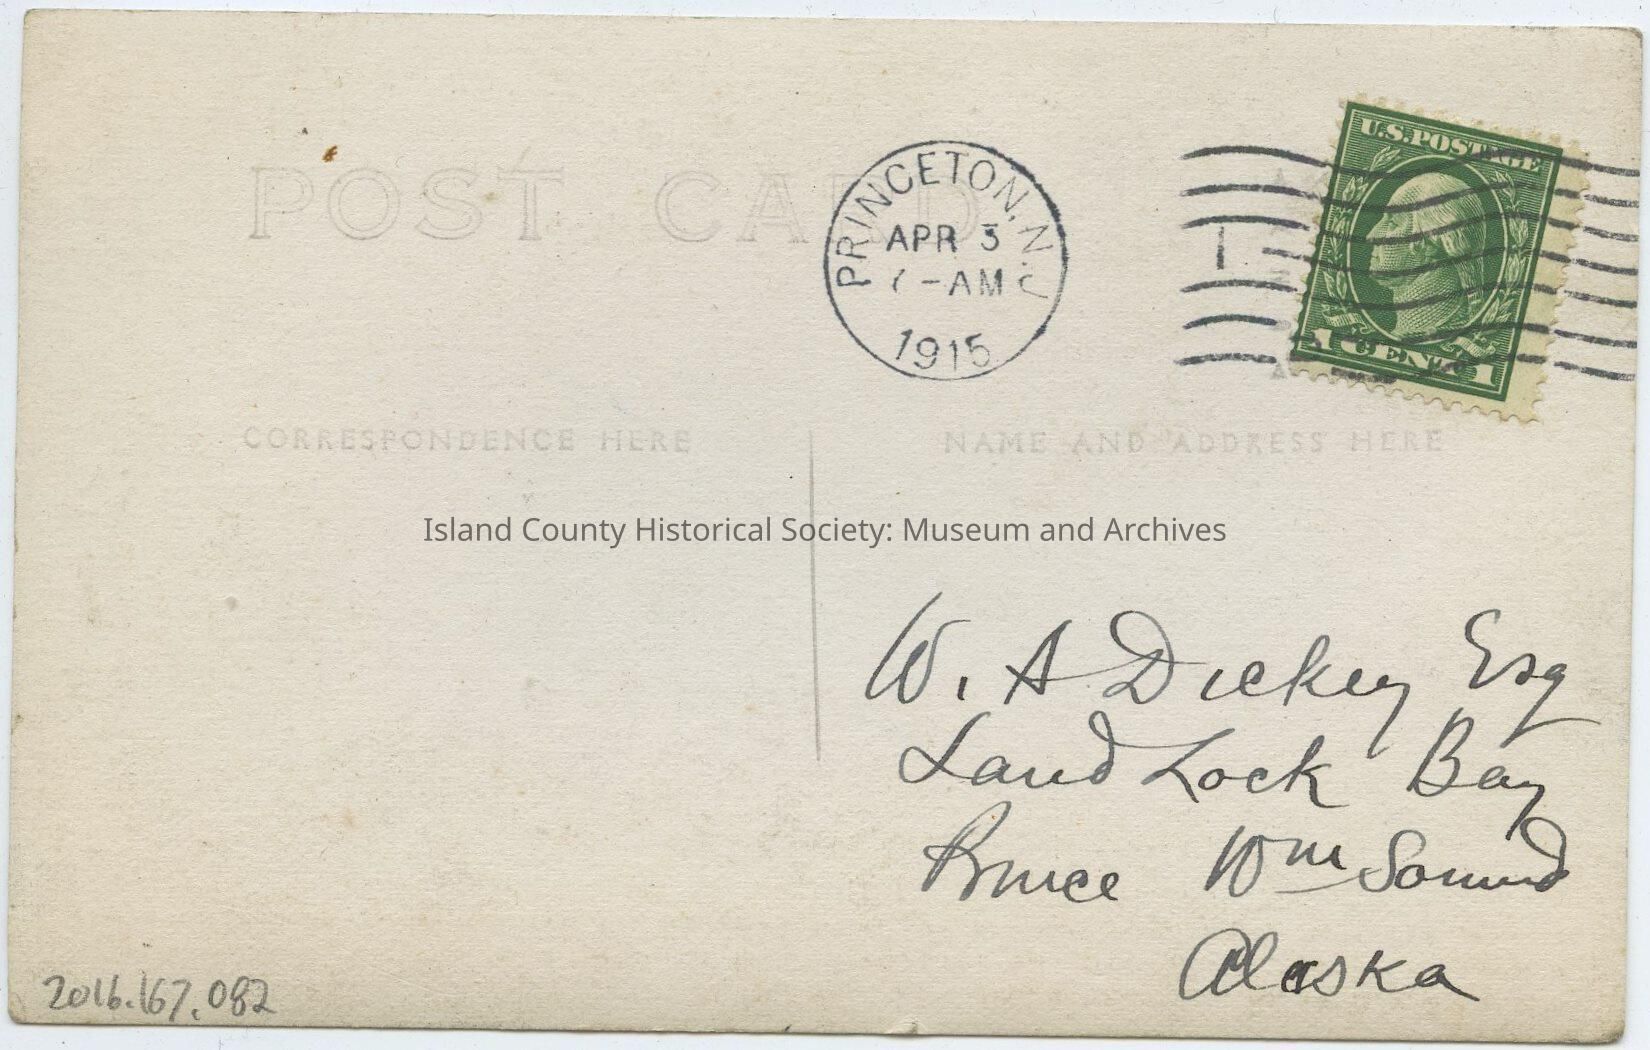 POST CARD
PRINCETON, N.J.
APR 3
7-AM
1915
1
U.S. POSTAGE
1 CENT 1
CORRESPONDENCE HERE
NAME AND ADDRESS HERE
Island County Historical Society: Museum and Archives
W. A Dickey Esq
Land Lock Bay
Prince Wm Sound
Alaska
2016.167.082